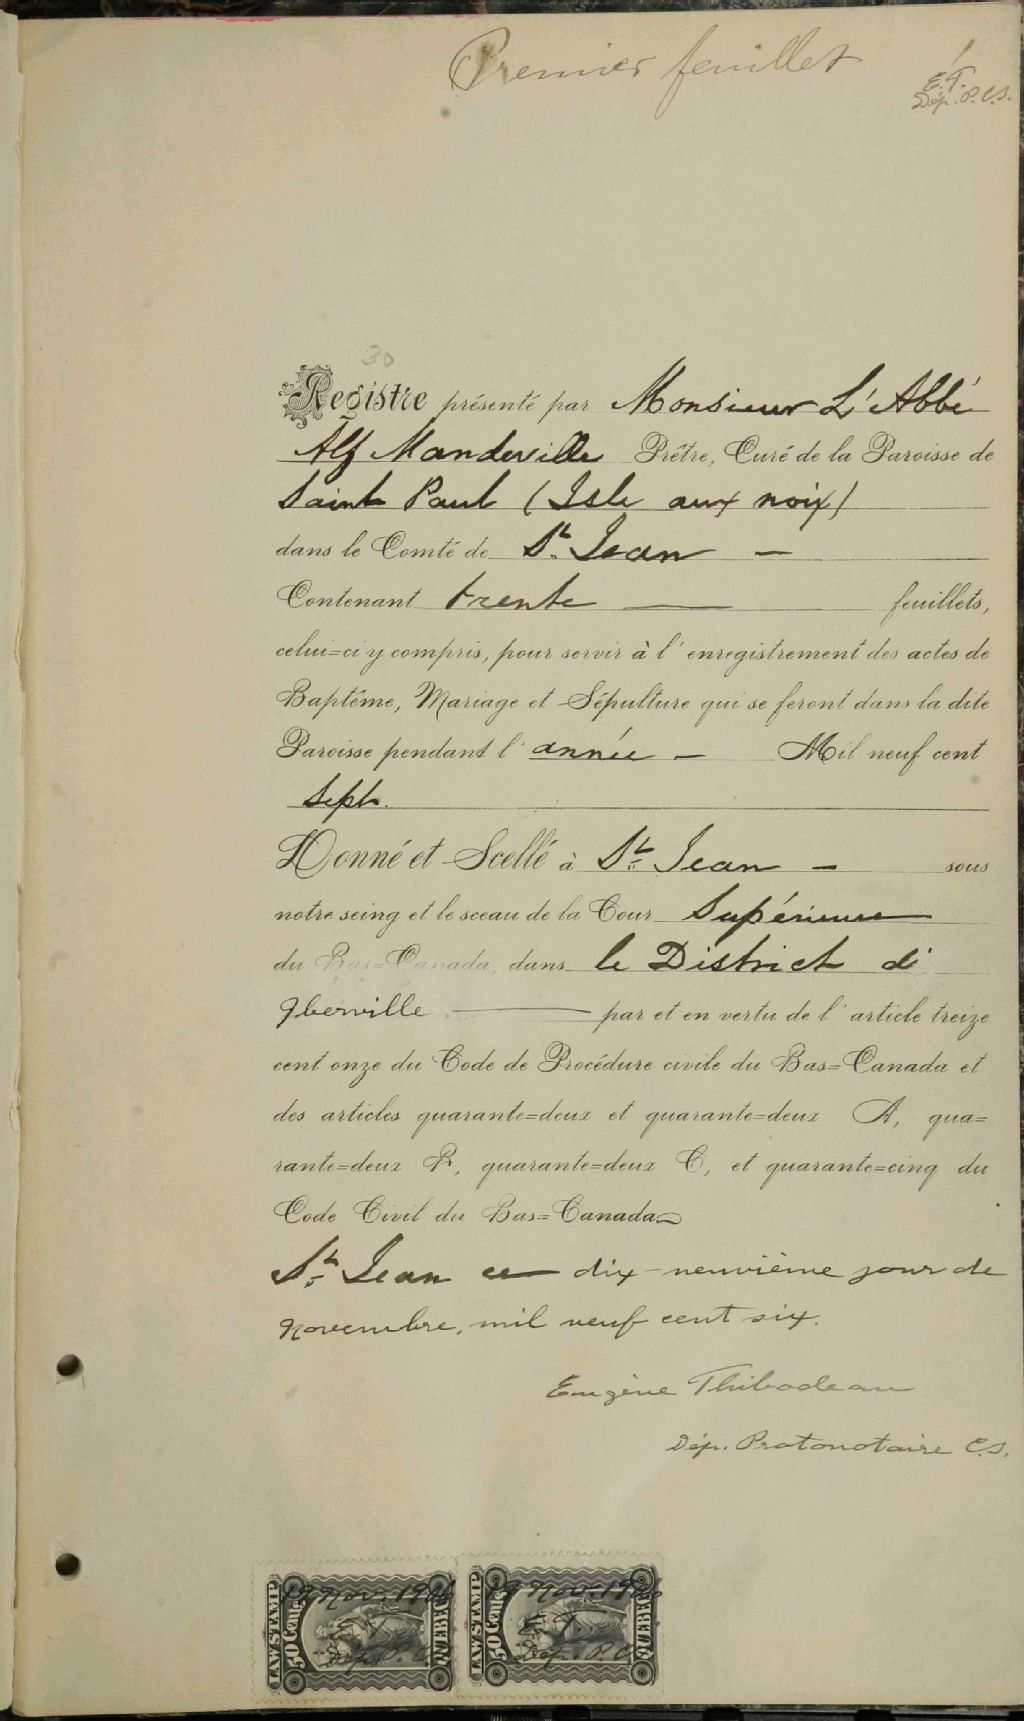 Premier feuillet
1
E.T.
Dép. P.C.S.
30
Registre présenté par Monsieur L'Abbé
Alf Mandeville Prêtre, Curé de la Paroisse de
Saint Paul (Isle aux noix)
dans le Comté de St. Jean —
Contenant trente — feuillets,
celui=ci y compris, pour servir à l'enregistrement des actes de
Baptême, Mariage et Sépulture qui se feront dans la dite
Paroisse pendant l'année — Mil neuf cent
Sept.
Donné et Scellé à St. Jean — sous
notre seing et le sceau de la Cour Supérieure
du Bas=Canada, dans le District d'
Iberville — par et en vertu de l'article treize
cent onze du Code de Procédure civile du Bas=Canada et
des articles quarante=deux et quarante=deux A, qua=
rante=deux B, quarante=deux C, et quarante=cinq du
Code Civil du Bas=Canada
St. Jean ce dix-neuvième jour de
Novembre, mil neuf cent six.
Eugène Thibodeau
Dép. Protonotaire C.S.
LAW STAMP
50 Cents
QUEBEC
19 Nov. 1906
E.T.
Dép. P.C.
LAW STAMP
50 Cents
QUEBEC
19 Nov. 1906
E.T.
Dép. P.C.